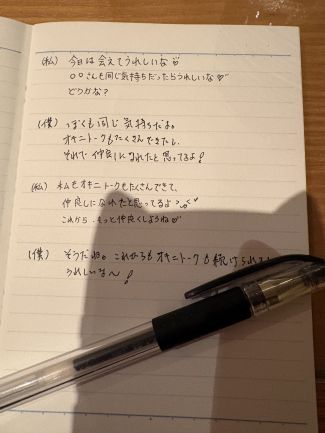 (私) 今日は会えてうれしいな♡
○○さんも同じ気持ちだったらうれしいな♡
どうかな？
(僕) ぼくも同じ気持ちだよ。
オキニトークもたくさんできたし、
それで仲良しになれたと思ってるよ！
(私) 私もオキニトークもたくさんできて、
仲良しになれたと思ってるよ
これから、もっと仲良くしようね♡
(僕) そうだね。これからもオキニトークも続けられたら
うれしいな〜！